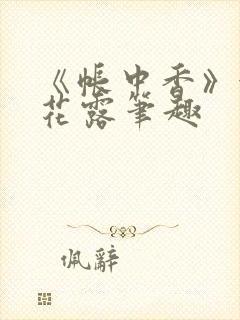 《帐中香》
花露笔趣
佩辞